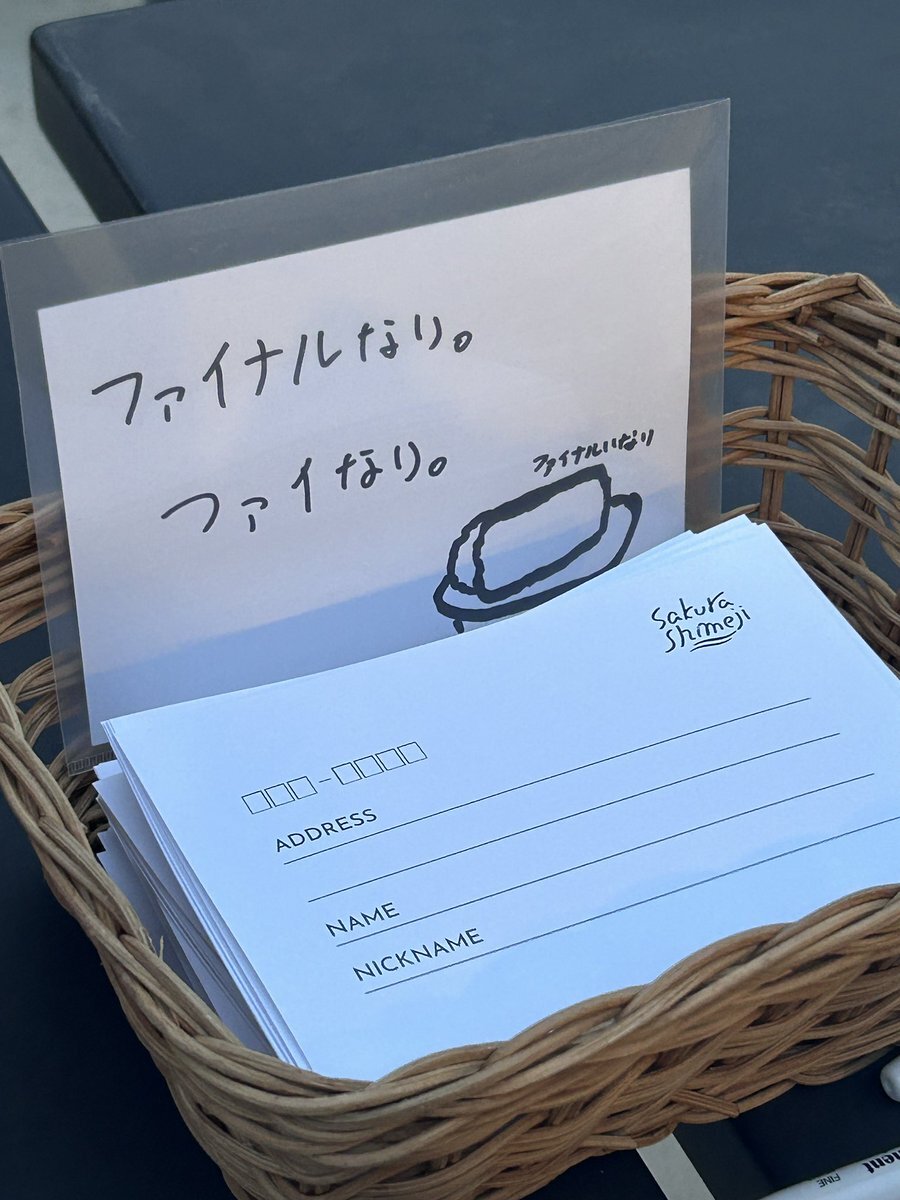 ファイナルなり。
ファイなり。
ファイナルいなり
Sakura
Shimeji
□□□-□□□□
ADDRESS
NAME
NICKNAME
FINE